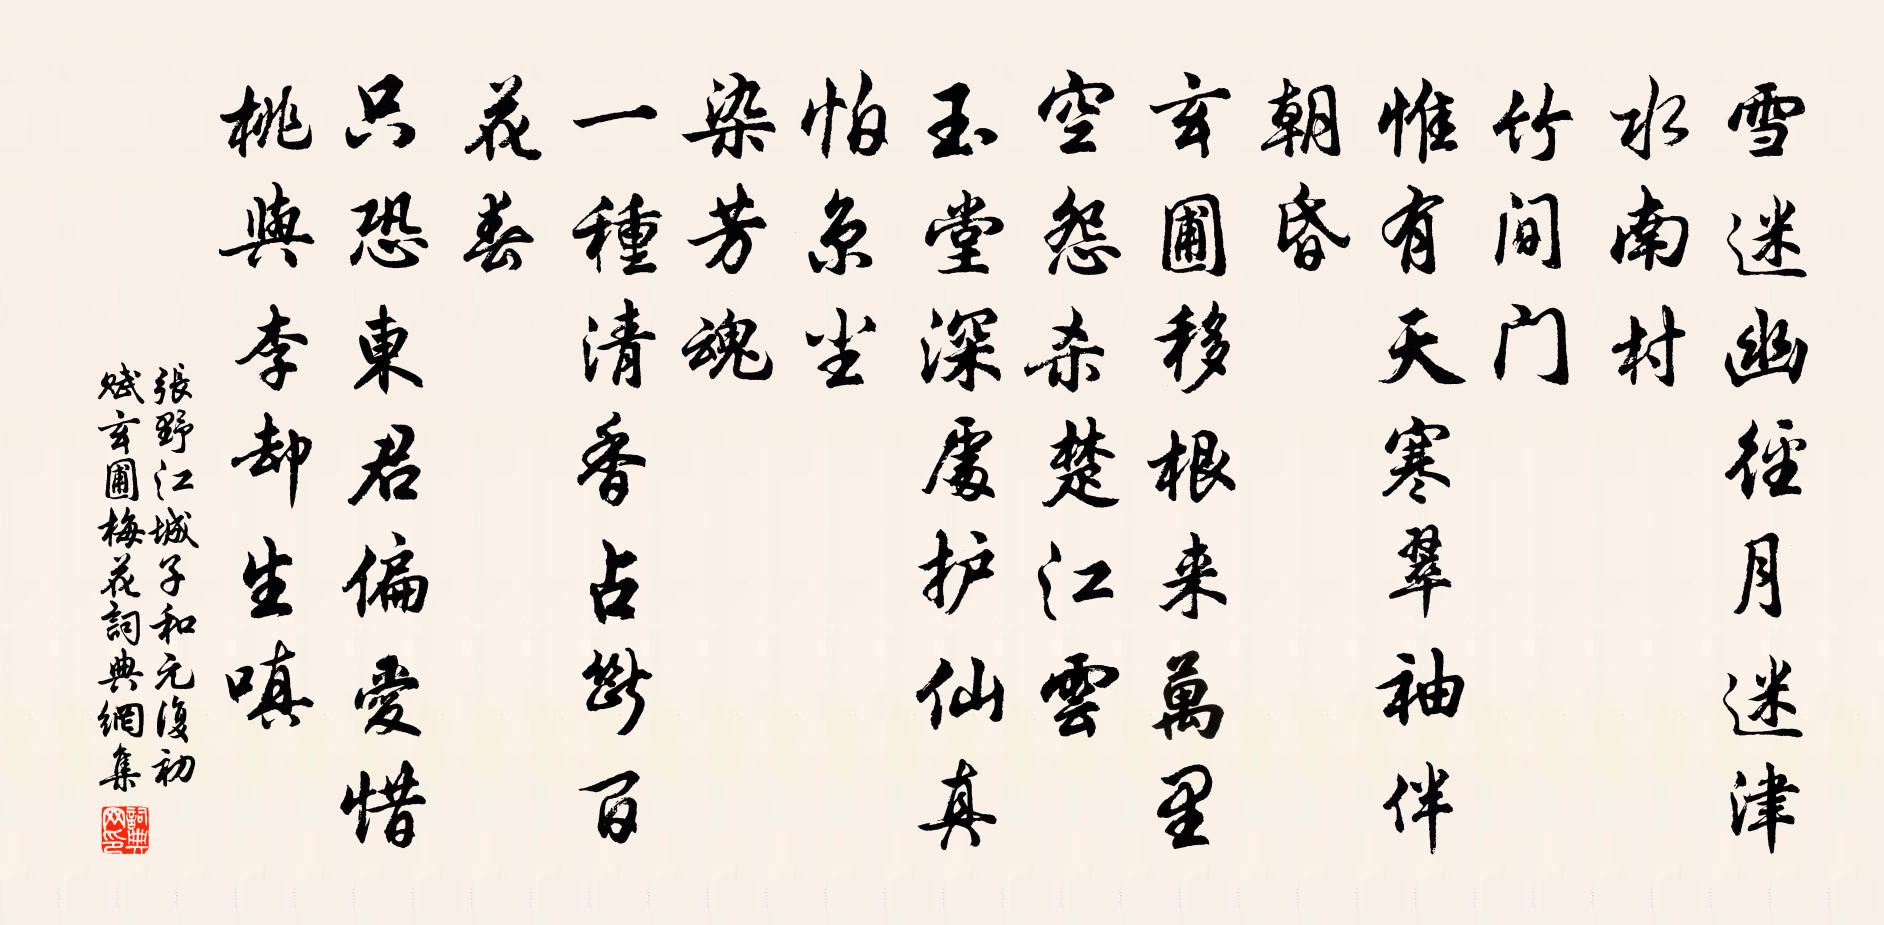 雪迷幽径月迷津
水南村
竹间门
惟有天寒翠袖伴
朝昏
玄圃移根来萬里
空怨杀楚江雲
玉堂深處护仙真
怕京尘
染芳魂
一種清香占断百
花春
只恐東君偏愛惜
桃與李却生嗔
張野江城子和元復初
賦玄圃梅花詞典網集
詞典
网印